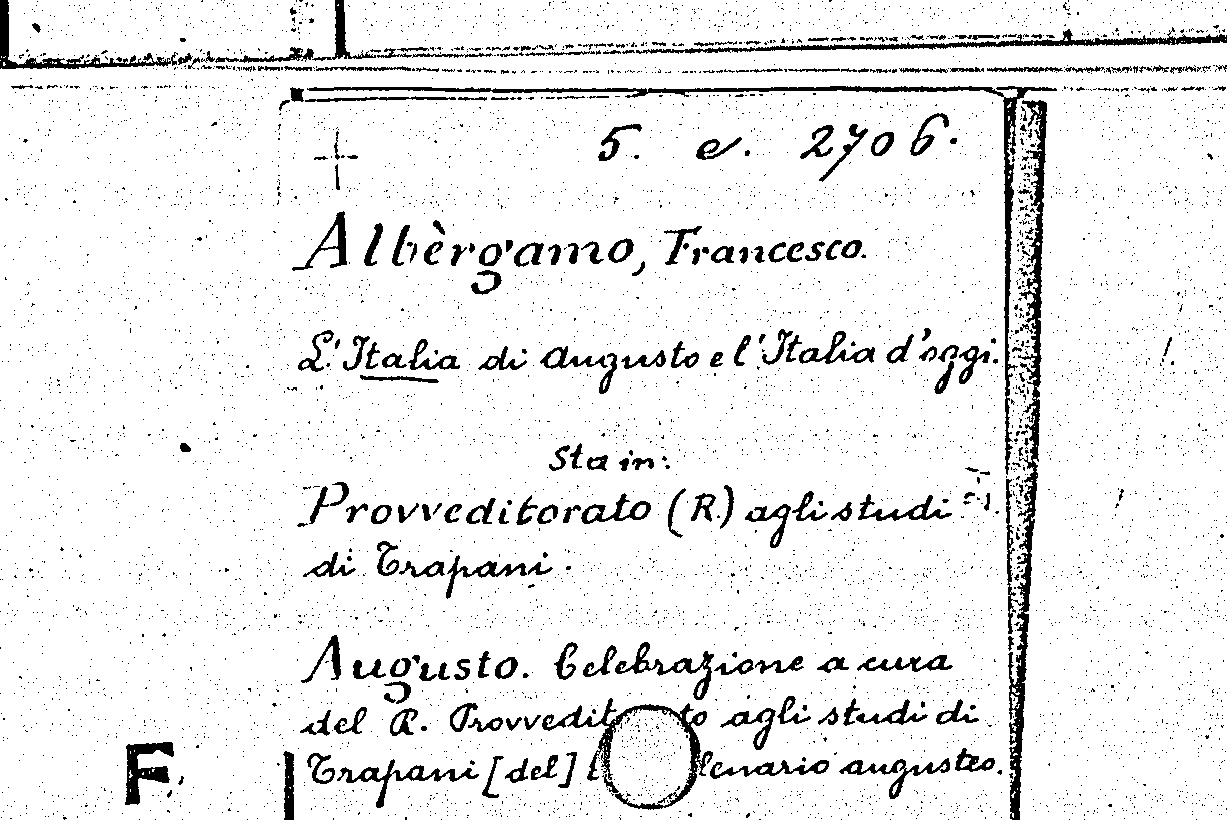 5. e. 2706.
Albèrgamo, Francesco.
L'Italia di Augusto e l'Italia d'oggi.
Sta in:
Provveditorato (R.) agli studi
di Trapani.
Augusto. Celebrazione a cura
del R. agli studi di
Trapani [del] augusteo.
F.